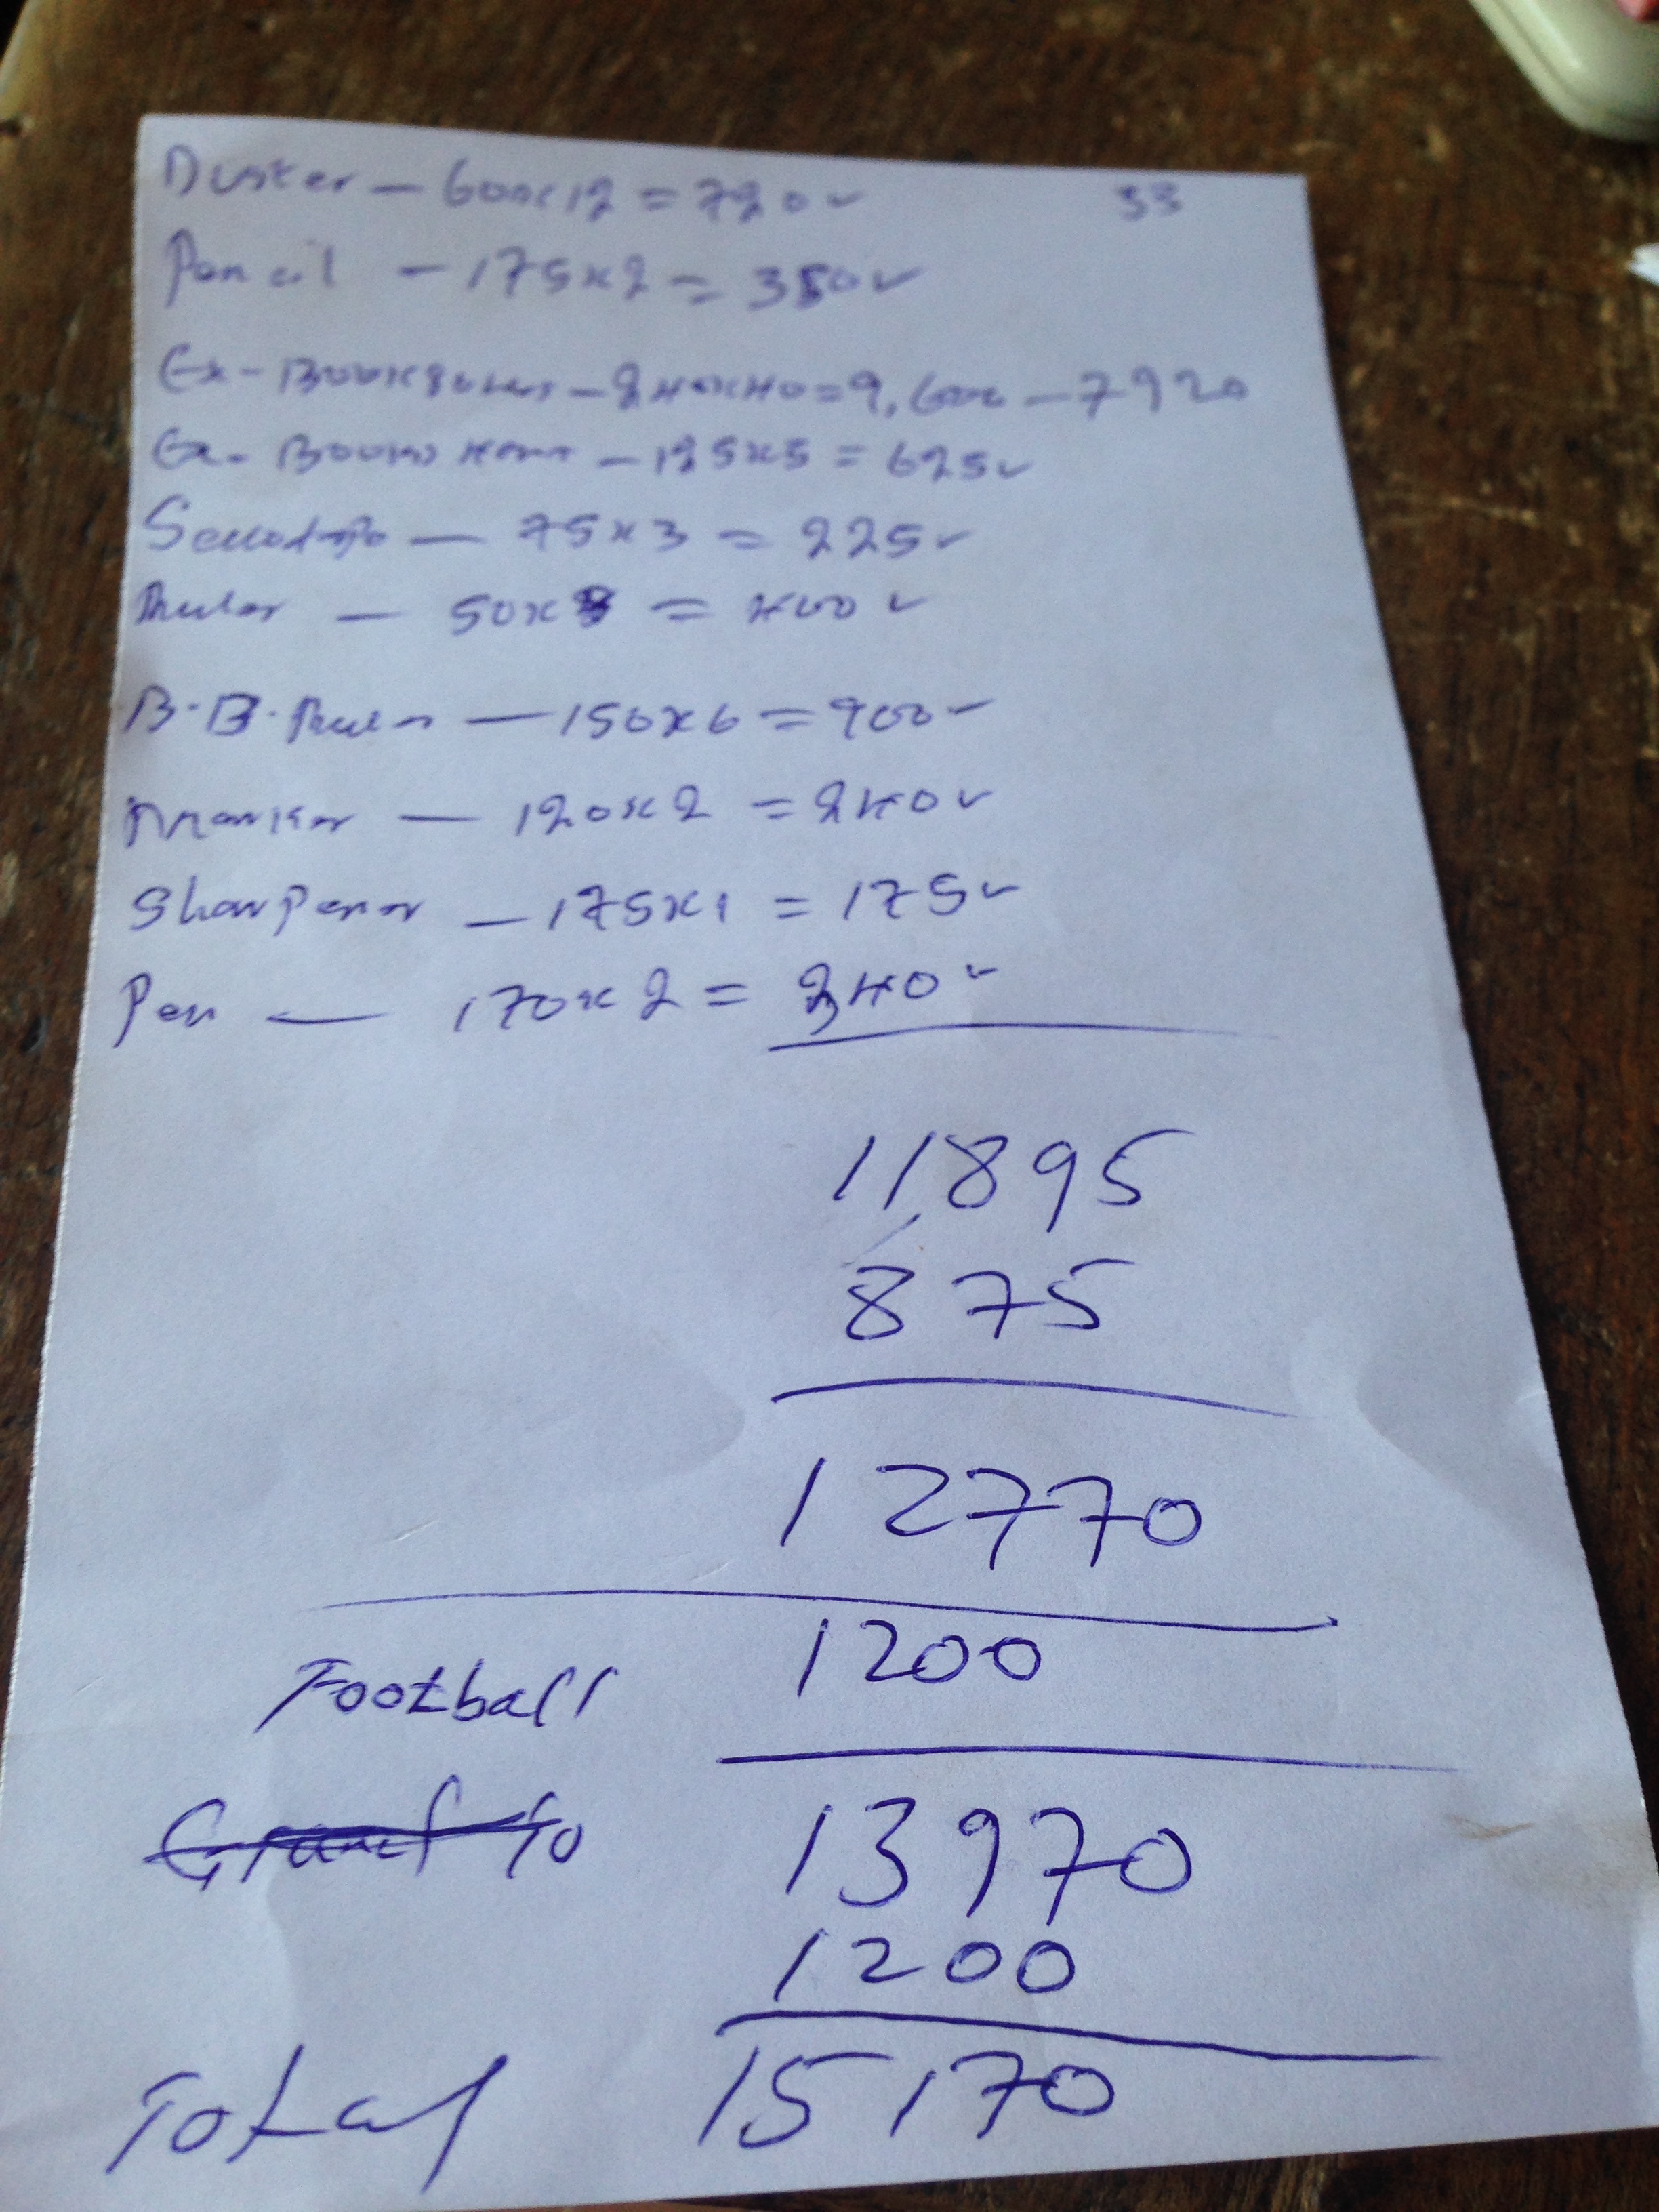 Duster — 60x12 = 720 ✓ 33
Pencil — 175x2 = 350 ✓
Ex-Book — 240x40 = 9,600 — 7920
Ex-Books — 125x5 = 625 ✓
Sellotape — 75x3 = 225 ✓
Ruler — 50x8 = 400 ✓
B.B. Ruler — 150x6 = 900 ✓
Marker — 120x2 = 240 ✓
Sharpener — 175x1 = 175 ✓
Pen — 170x2 = 340 ✓
11895
875
12770
Football 1200
13970
1200
Total 15170